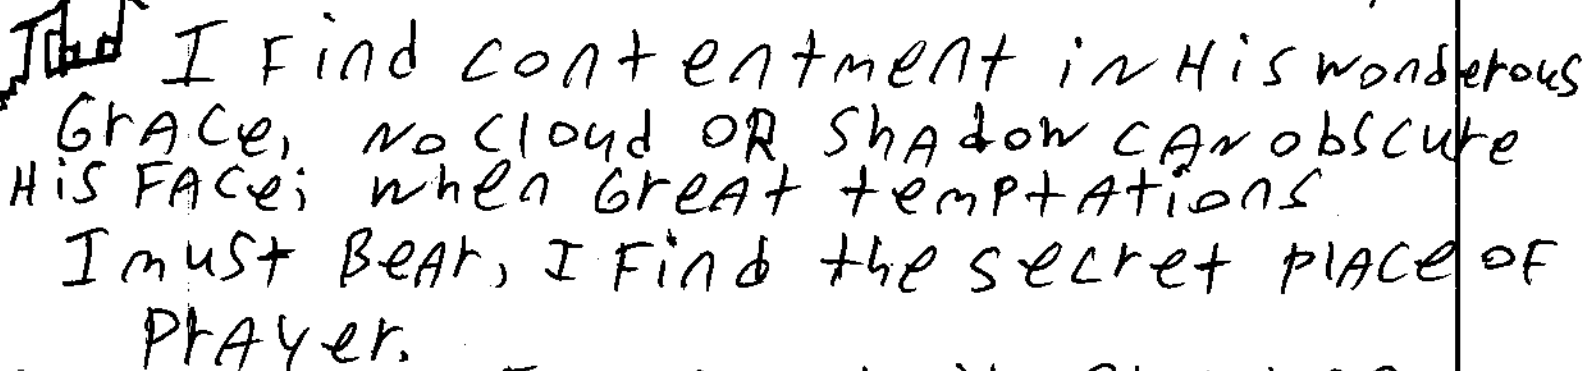 I Find contentment in His wonderous
GrACe, No Cloud OR ShAdow CAN obscure
His FACe; when GreAt temptAtions
I must BeAr, I Find the secret plACe OF
PrAyer.